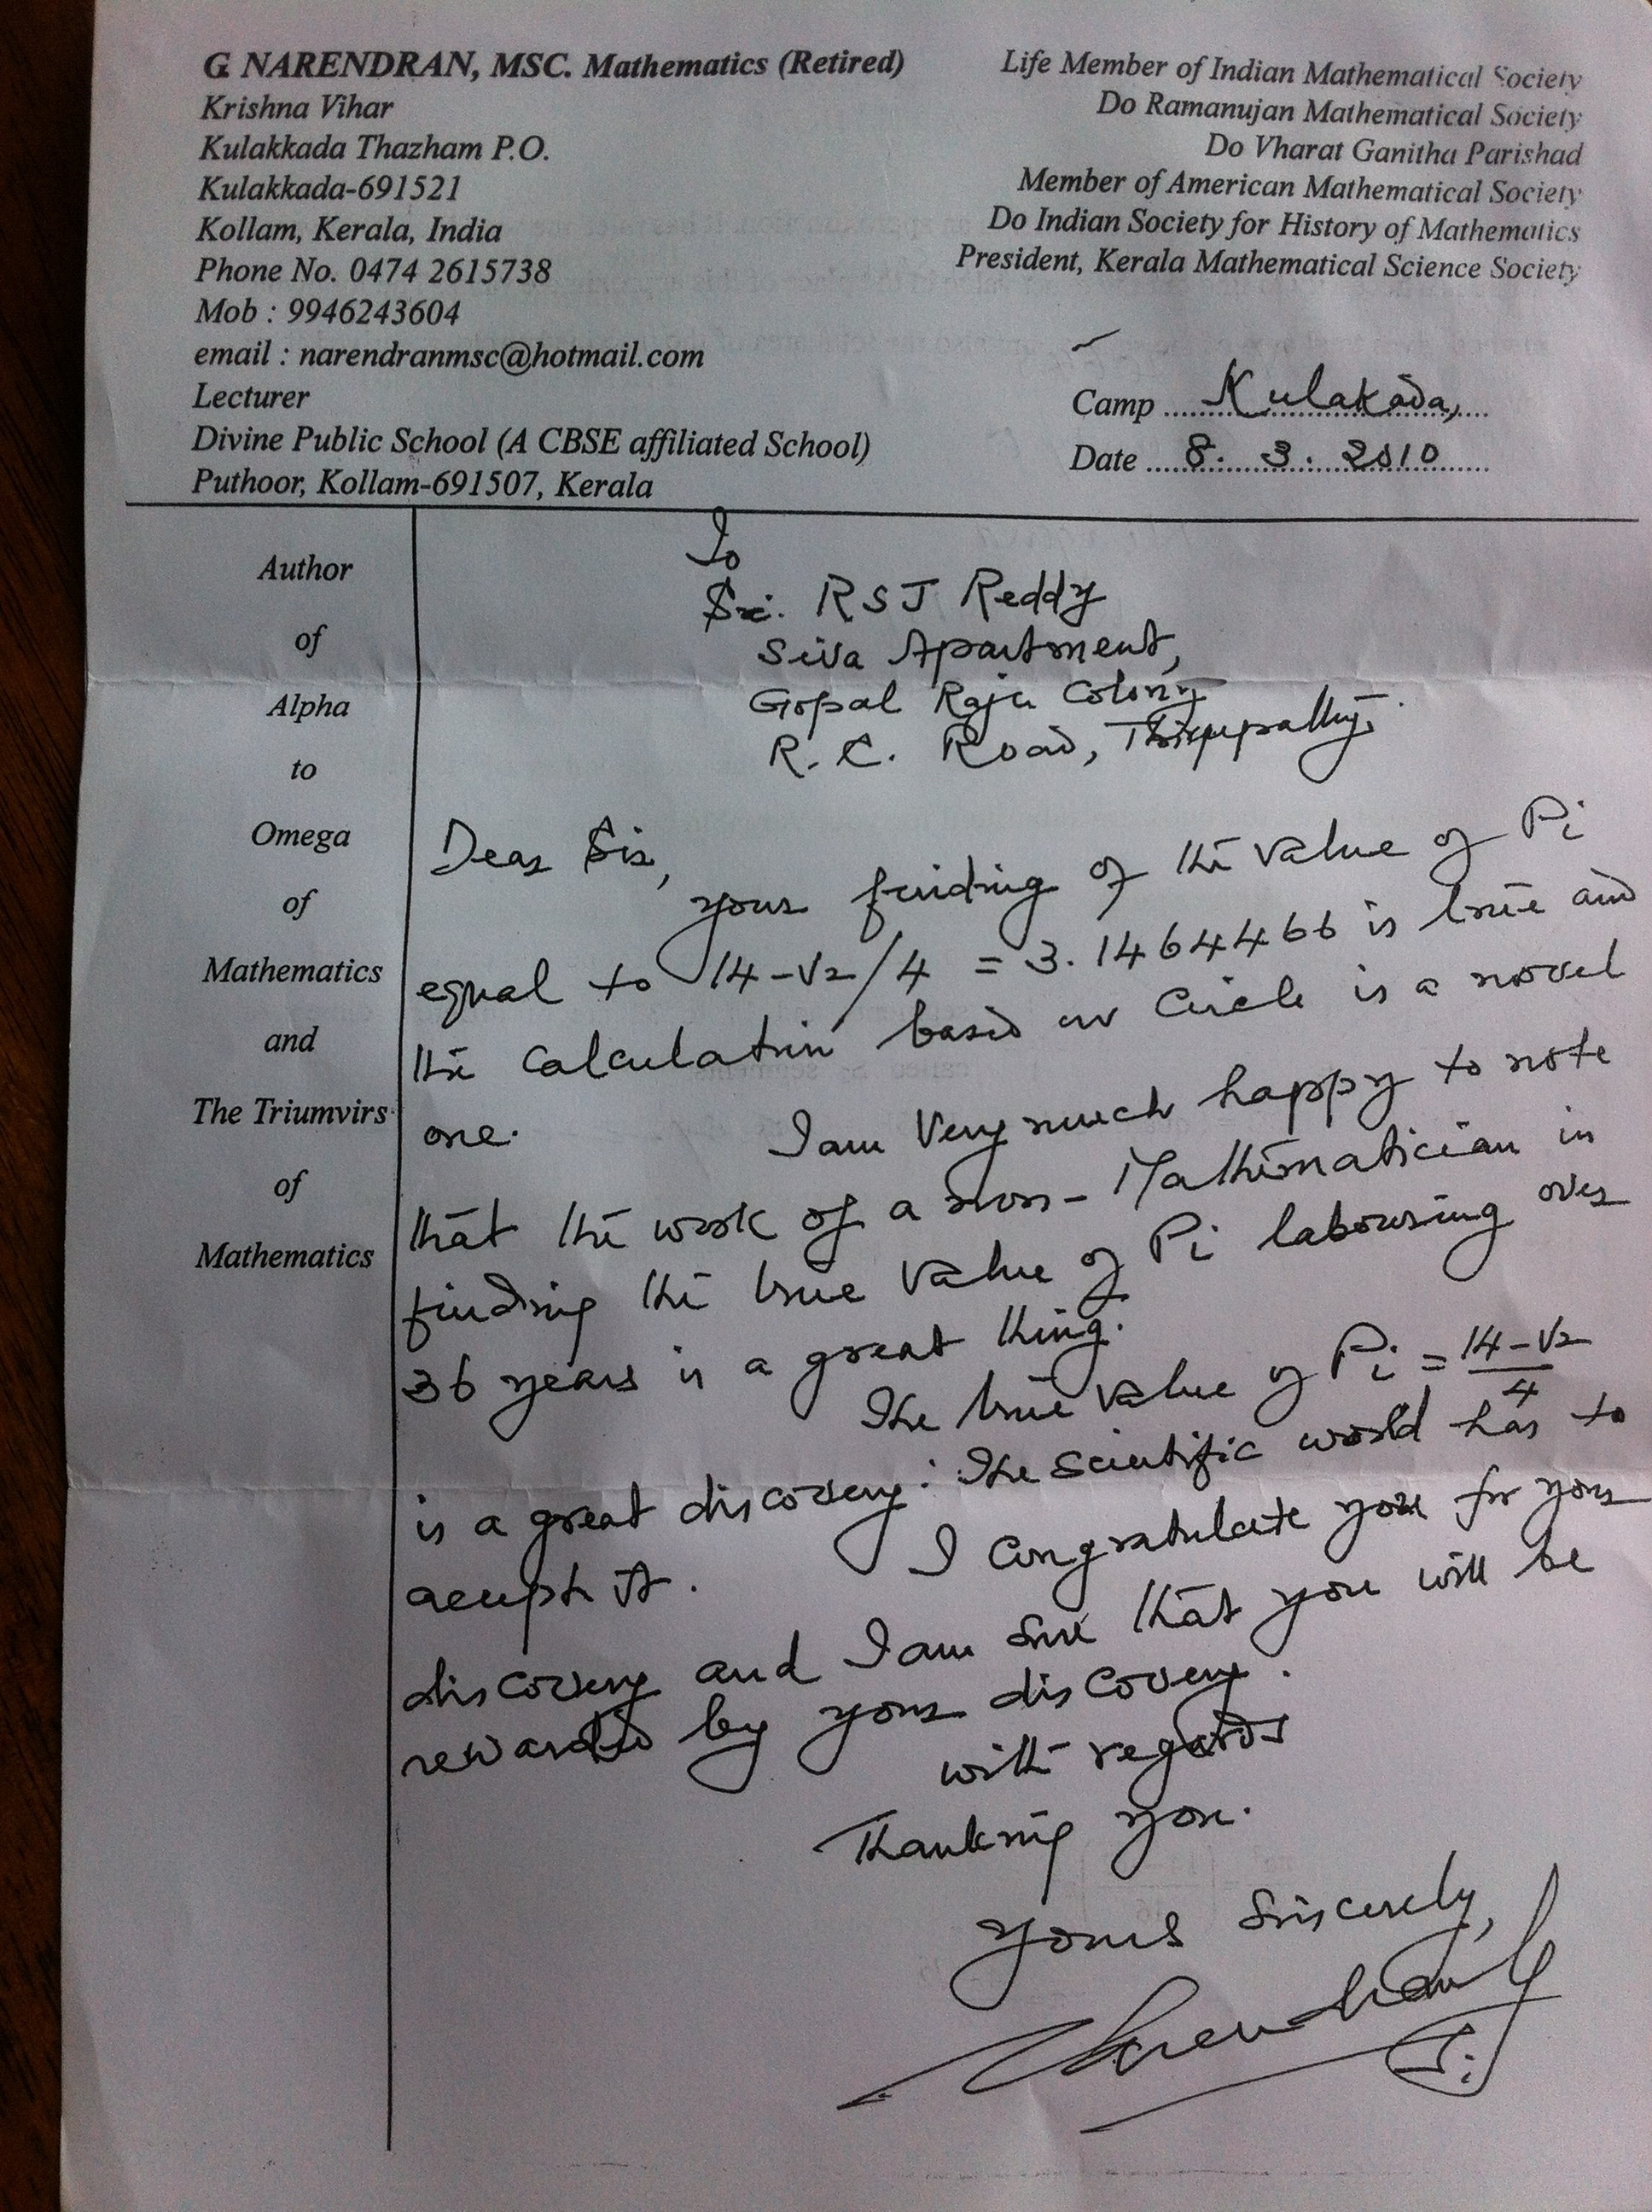 G. NARENDRAN, MSC. Mathematics (Retired)
Krishna Vihar
Kulakkada Thazham P.O.
Kulakkada-691521
Kollam, Kerala, India
Phone No. 0474 2615738
Mob : 9946243604
email : narendranmsc@hotmail.com
Lecturer
Divine Public School (A CBSE affiliated School)
Puthoor, Kollam-691507, Kerala
Life Member of Indian Mathematical Society
Do Ramanujan Mathematical Society
Do Vharat Ganitha Parishad
Member of American Mathematical Society
Do Indian Society for History of Mathematics
President, Kerala Mathematical Science Society
Camp Kulakada,
Date 8. 3. 2010
Author
of
Alpha
to
Omega
of
Mathematics
and
The Triumvirs
of
Mathematics
To
Sri. RSJ Reddy
Siva Apartment,
Gopal Raju Colony
R. C. Road, Thirupathy.
Dear Sir,
your finding of the value of Pi
equal to 14-√2/4 = 3.1464466 is true and
the calculation based on Circle is a novel
one.
I am very much happy to note
that the work of a non-Mathematician in
finding the true value of Pi labouring over
36 years is a great thing.
The true value of Pi = 14-√2/4
is a great discovery. The scientific world has to
accept it.
I congratulate you for your
discovery and I am sure that you will be
rewarded by your discovery.
with regards
Thanking you.
Yours Sincerely,
Narendran G